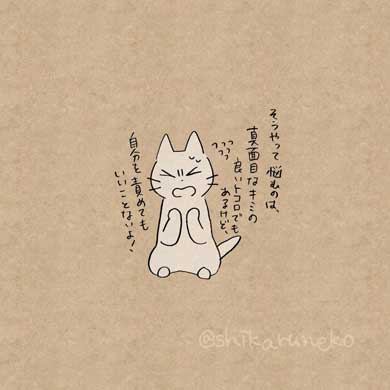 そうやって悩むのは、
真面目なキミの
良いトコロでも
あるけど、
っっっっっ
自分を責めても
いいことないよ!
@shikaruneko